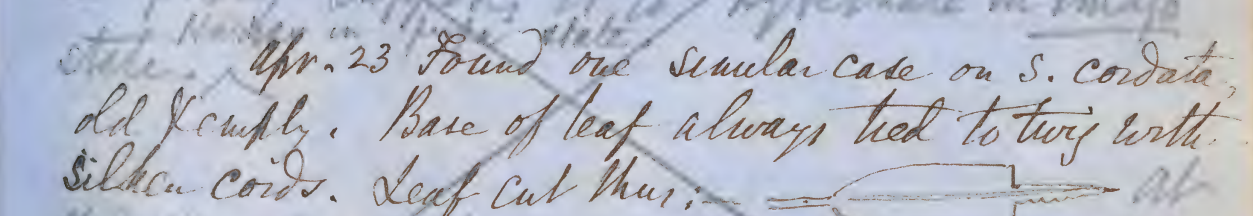 hibernate in image
state.
Apr. 23 Found one similar case on S. cordata,
old & empty. Base of leaf always tied to twig with
silken cords. Leaf cut thus:—
at